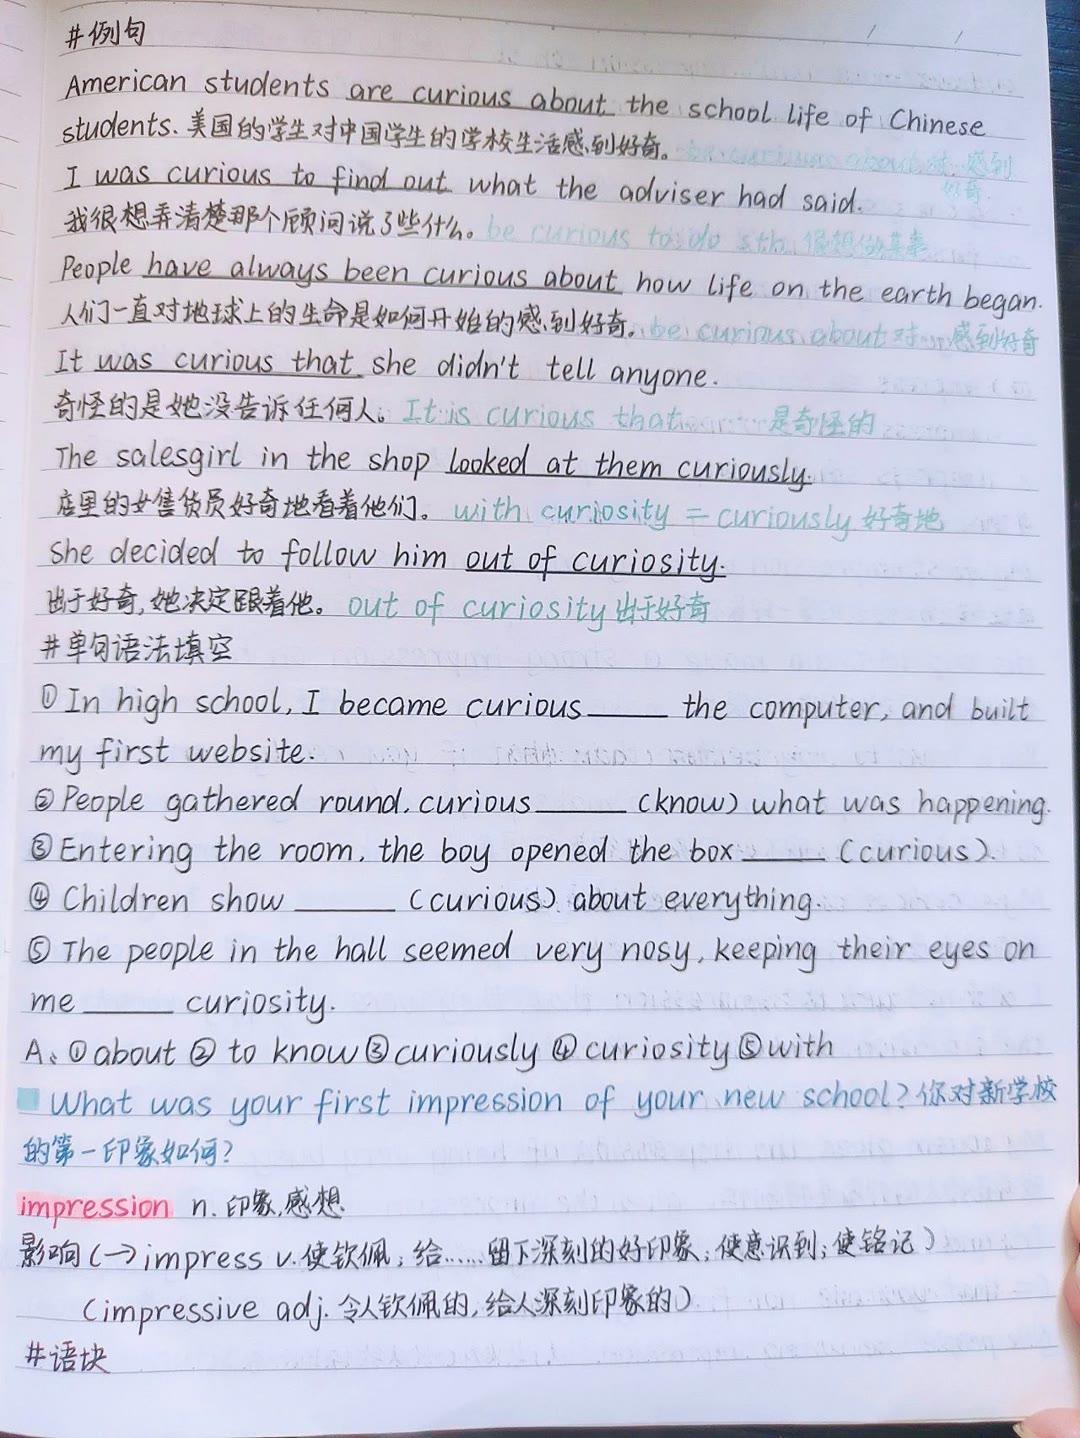 #例句
American students are curious about the school life of Chinese
students. 美国的学生对中国学生的学校生活感到好奇。be curious about 对…感到
好奇
I was curious to find out what the adviser had said.
我很想弄清楚那个顾问说了些什么。be curious to do sth. 很想做某事
People have always been curious about how life on the earth began.
人们一直对地球上的生命是如何开始的感到好奇。be curious about 对…感到好奇
It was curious that she didn't tell anyone.
奇怪的是她没告诉任何人。It is curious that……是奇怪的
The salesgirl in the shop looked at them curiously.
店里的女售货员好奇地看着他们。with curiosity = curiously 好奇地
She decided to follow him out of curiosity.
出于好奇,她决定跟着他。out of curiosity 出于好奇
#单句语法填空
①In high school, I became curious____ the computer, and built
my first website.
②People gathered round, curious____ (know) what was happening.
③Entering the room, the boy opened the box ____ (curious).
④Children show ____ (curious) about everything.
⑤The people in the hall seemed very nosy, keeping their eyes on
me ____ curiosity.
A、①about ② to know ③curiously ④curiosity ⑤with
What was your first impression of your new school? 你对新学校
的第一印象如何?
impression n. 印象,感想
影响(→) impress v. 使钦佩;给……留下深刻的好印象;使意识到;使铭记)
(impressive adj. 令人钦佩的,给人深刻印象的)
#语块